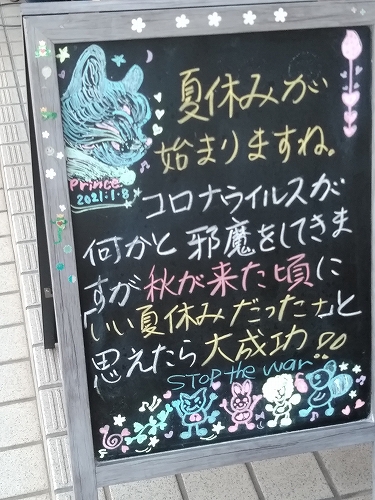 夏休みが
始まりますね。
Prince
2021.1.8
コロナウイルスが
何かと邪魔をしてきま
すが秋が来た頃に
「いい夏休みだったナ」と
思えたら大成功!!
STOP the war